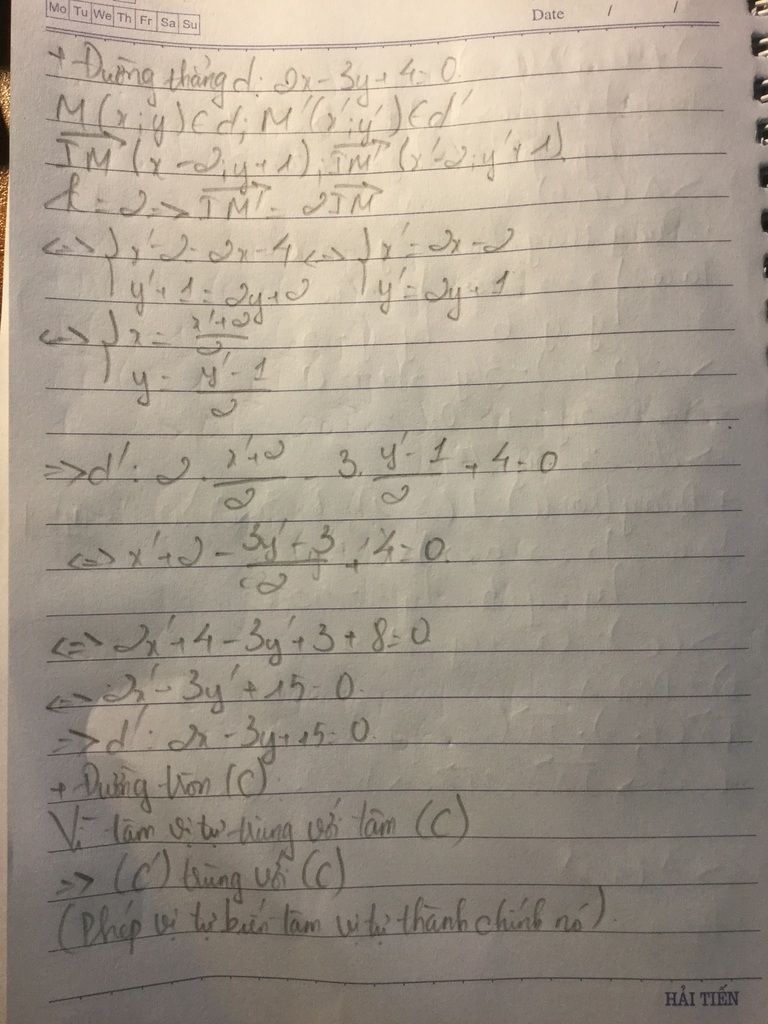 Mo Tu We Th Fr Sa Su
Date / /
+ Đường thẳng d: 2x - 3y + 4 = 0
M(x;y) ∈ d; M'(x';y') ∈ d'
IM (x-2;y+1), IM' (x'-2;y'+1)
k = 2 => IM' = 2IM
<=> { x'-2 = 2x-4 <=> { x' = 2x-2
y'+1 = 2y+2 y' = 2y+1
<=> { x = x'+2/2
y = y'-1/2
=> d': 2. x'+2/2 - 3. y'-1/2 + 4 = 0
<=> x'+2 - 3y'+3/2 + 4 = 0
<=> 2x'+4-3y'+3+8=0
<=> 2x'-3y'+15=0
=> d': 2x-3y+15=0
+ Đường tròn (C)
Vì tâm vị tự trùng với tâm (C)
=> (C') trùng với (C)
(Phép vị tự biến tâm vị tự thành chính nó).
HẢI TIẾN